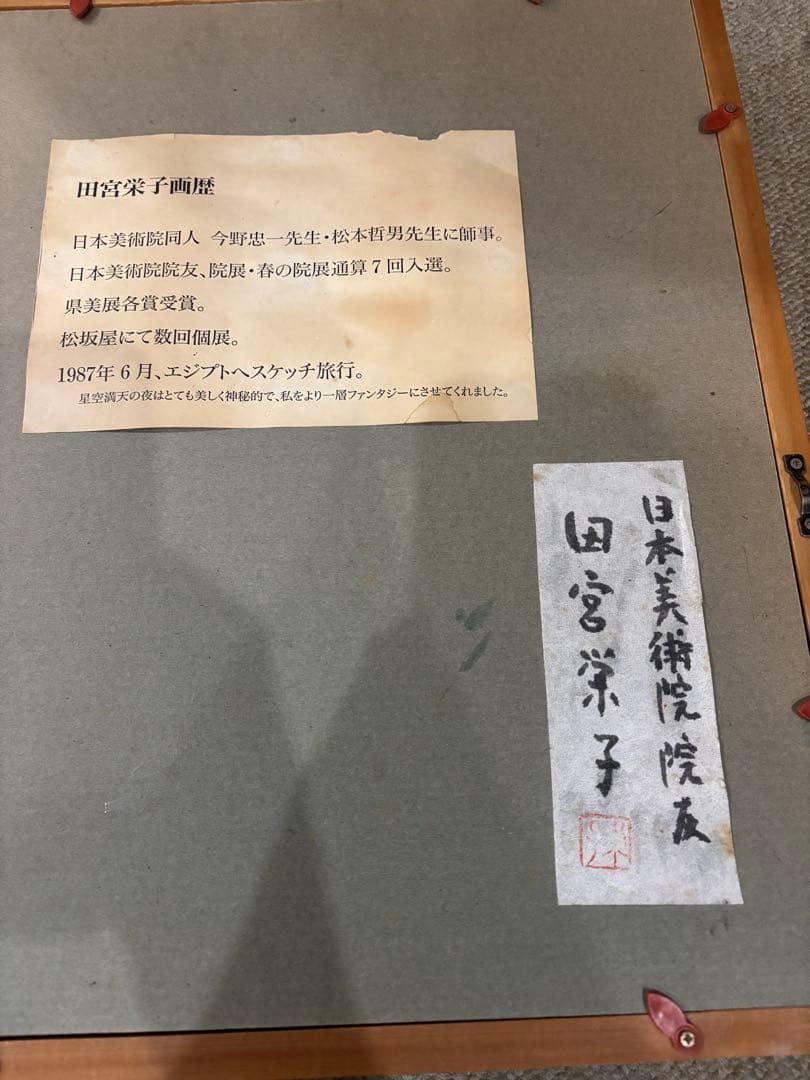 田宮栄子画歴
日本美術院同人 今野忠一先生・松本哲男先生に師事。
日本美術院院友、院展・春の院展通算7回入選。
県美展各賞受賞。
松坂屋にて数回個展。
1987年6月、エジプトへスケッチ旅行。
星空満天の夜はとても美しく神秘的で、私をより一層ファンタジーにさせてくれました。
日本美術院 院友
田宮栄子